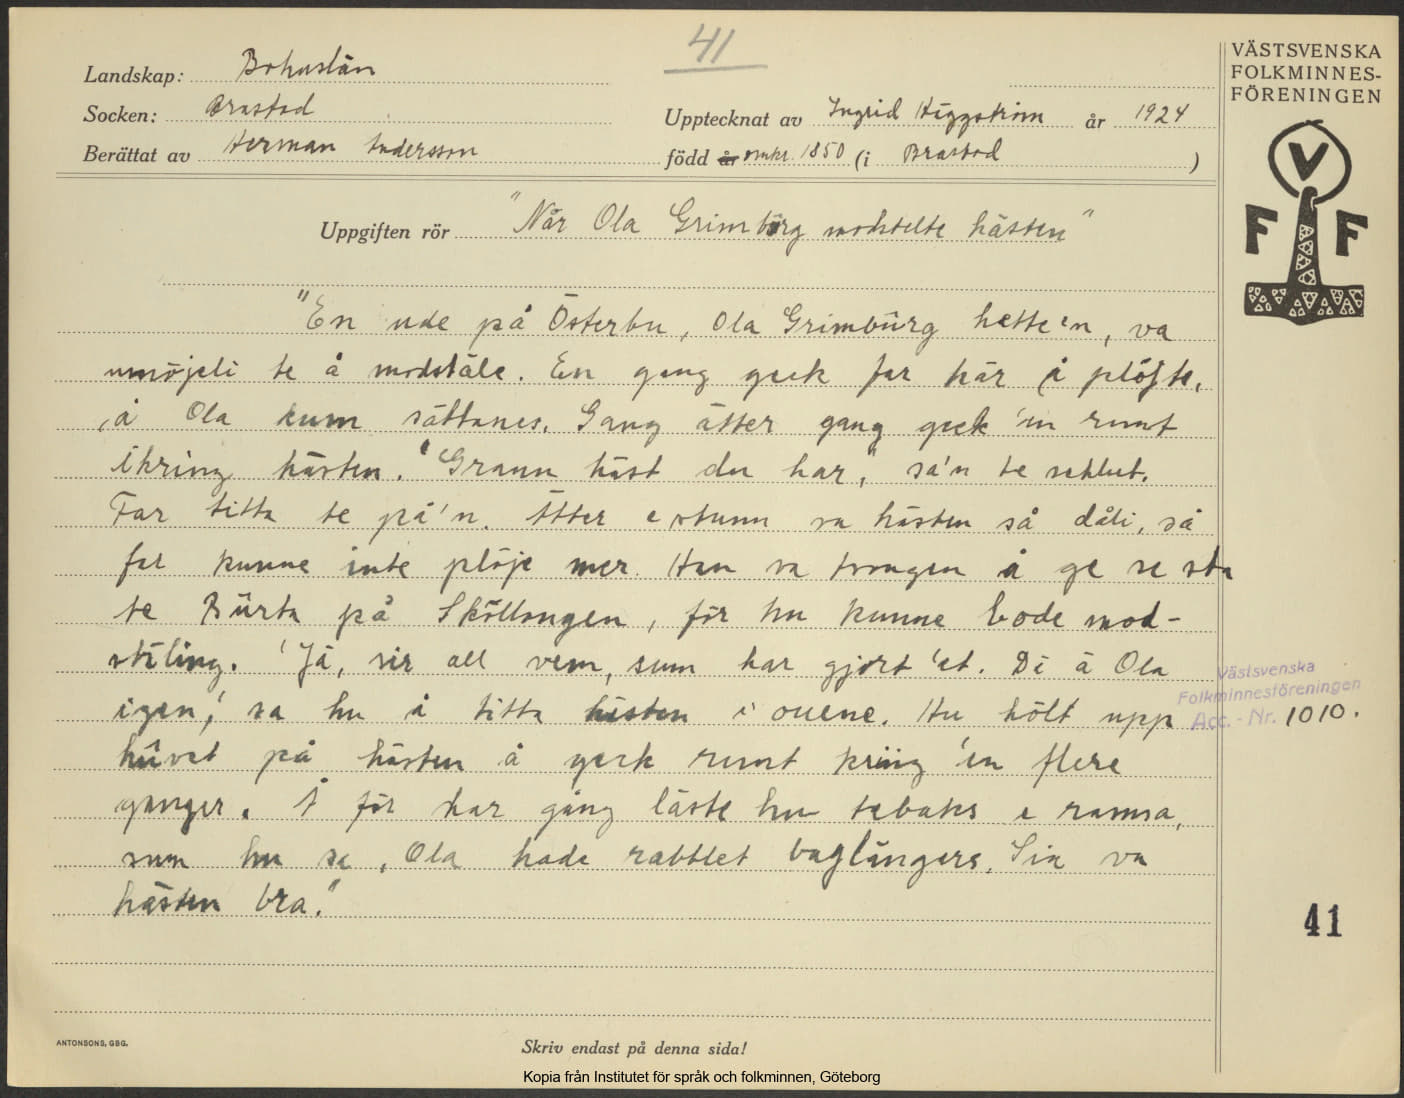 41
VÄSTSVENSKA
FOLKMINNES-
FÖRENINGEN
Landskap: Bohuslän
Socken: Brastad
Upptecknat av Ingrid Häggström år 1924
Berättat av Herman Andersson
född år omkr. 1850 (i Brastad)
Uppgiften rör "När Ola Grimbürg modstelte hästen"
V
F F
"En ude på Österbu, Ola Grimbürg hette'n, va
umöjeli te å modstäle. En gang geck far här å plöjte,
å Ola kum sättanes. Gang ätter gang geck 'in runt
ikring hästen. "Grann häst du har," sa'n te schlut.
Far titta te på'n. Ätter e stunn va hästen så dåli, så
far kunne inte plöje mer. Han va tvongen å ge se sta
te Bürta på Sköllongen, för hu kunne bode mod-
stäling. 'Jå, sir all vem, sum har gjort 'et. Dä ä Ola
igen,' sa hu å titta hästen i ouene. Hu hölt upp
hûvet på hästen å geck runt kring 'in flere
ganger. Å för har gång läste hu tebaks e ramsa,
sum hu sa, Ola hade rabblet baglängers. Sia va
hästen bra."
Västsvenska
Folkminnesföreningen
Acc.-Nr. 1010.
41
ANTONSONS, GBG.
Skriv endast på denna sida!
Kopia från Institutet för språk och folkminnen, Göteborg